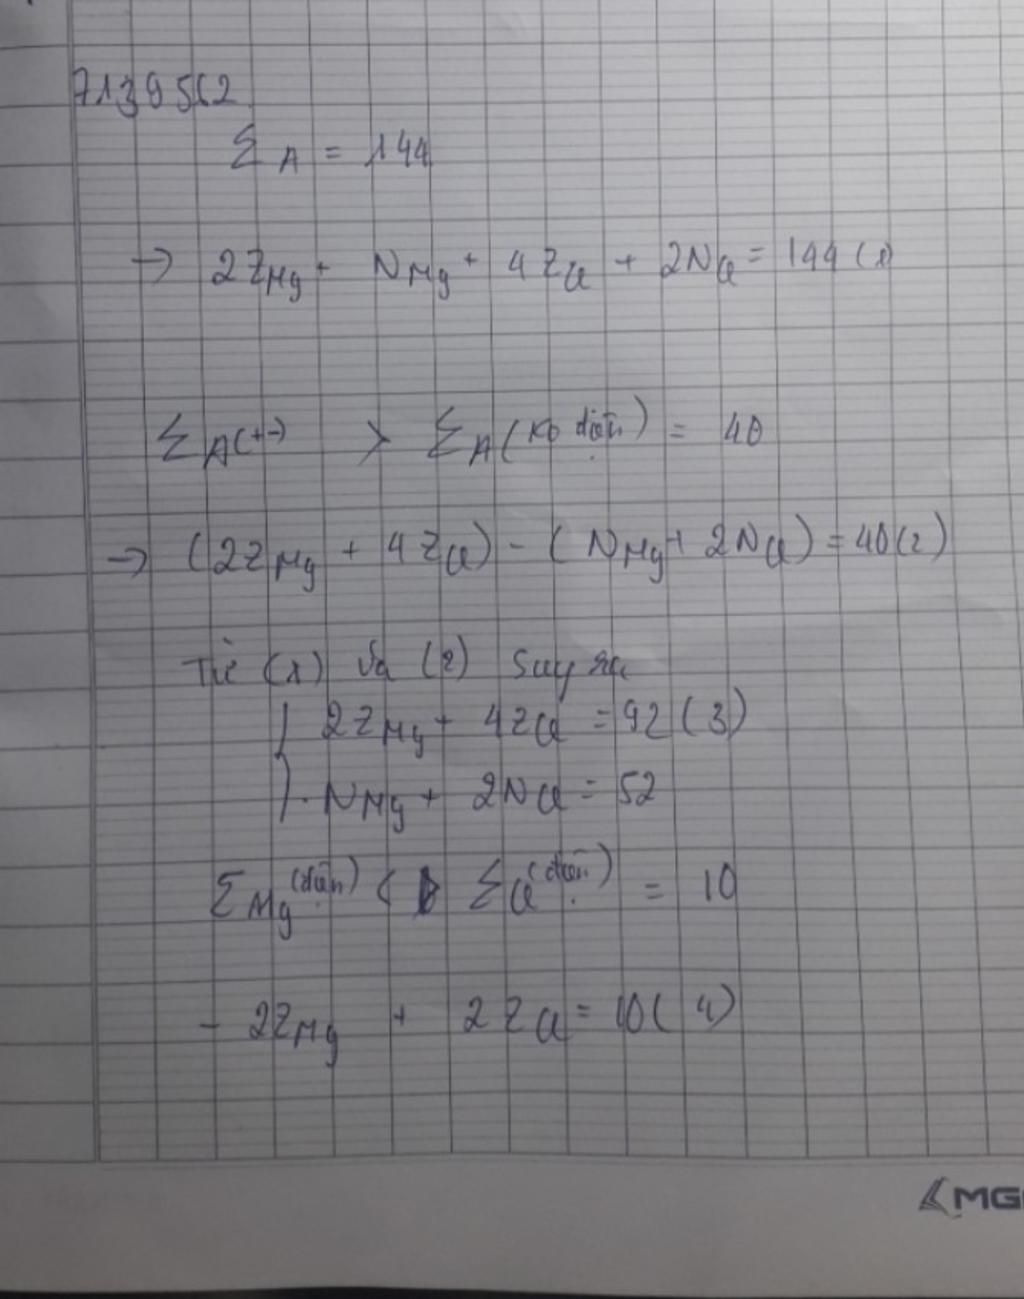 7139562
Σ A = 144
→ 2ZMg + NMg + 4ZCl + 2NCl = 144 (1)
Σ A(+-) > Σ A(ko điện) = 40
→ (2ZMg + 4ZCl) - (NMg + 2NCl) = 40 (2)
Từ (1) và (2) suy ra
2ZMg + 4ZCl = 92 (3)
NMg + 2NCl = 52
Σ Mg (điện) < Σ Cl (điện) = 10
- 2ZMg + 2ZCl = 10 (4)